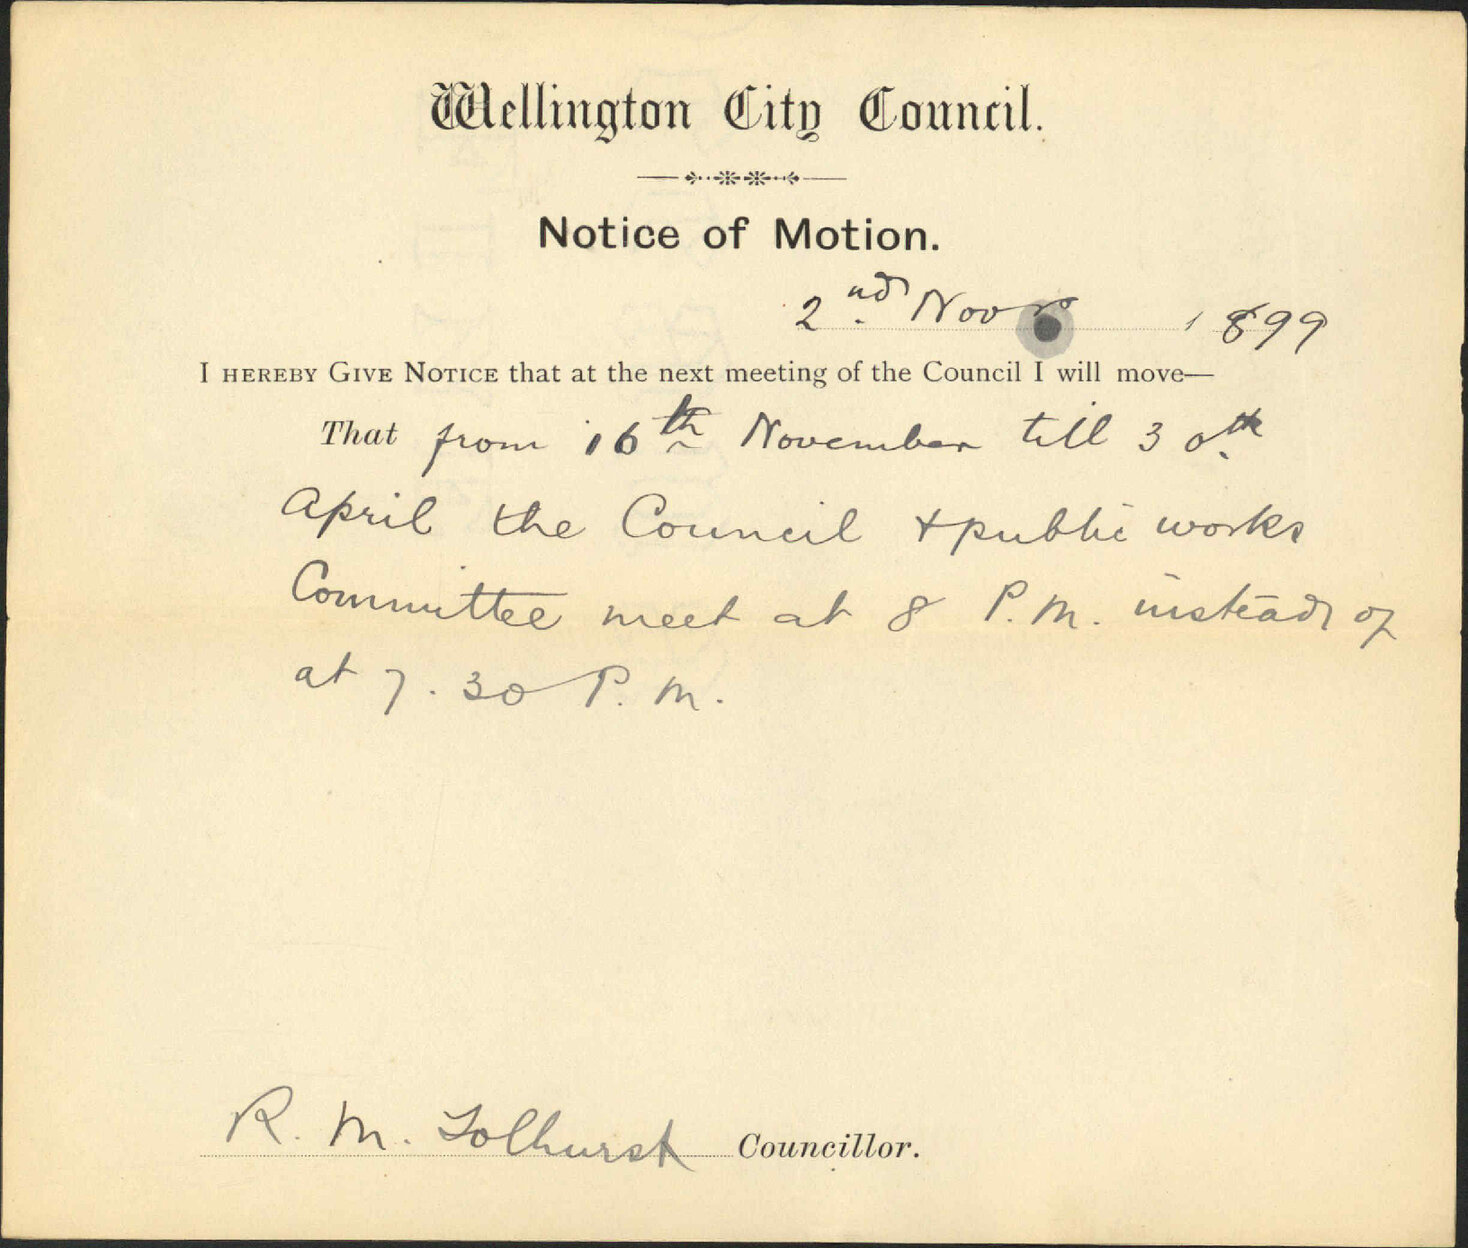 Wellington City Council.
Notice of Motion.
2nd Novr 1899
I HEREBY GIVE NOTICE that at the next meeting of the Council I will move—
That from 16th November till 30th
April the Council & public works
Committee meet at 8 P.M. instead of
at 7.30 P.M.
R. M. Tolhurst Councillor.